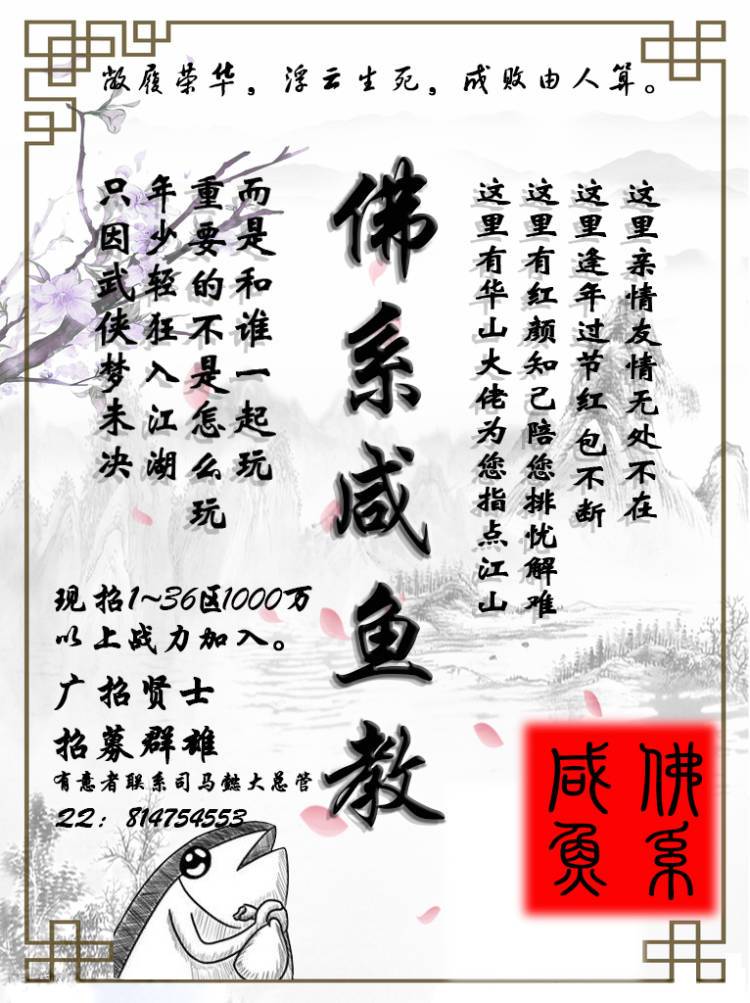 敝履荣华，浮云生死，成败由人算。
这里亲情友情无处不在
这里逢年过节红包不断
这里有红颜知己陪您排忧解难
这里有华山大佬为您指点江山
佛系咸鱼教
而是和谁一起玩
重要的不是怎么玩
年少轻狂入江湖
只因武侠梦未决
现招1~36区1000万
以上战力加入。
广招贤士
招募群雄
有意者联系司马懿大总管
QQ：814754553
佛系
咸鱼